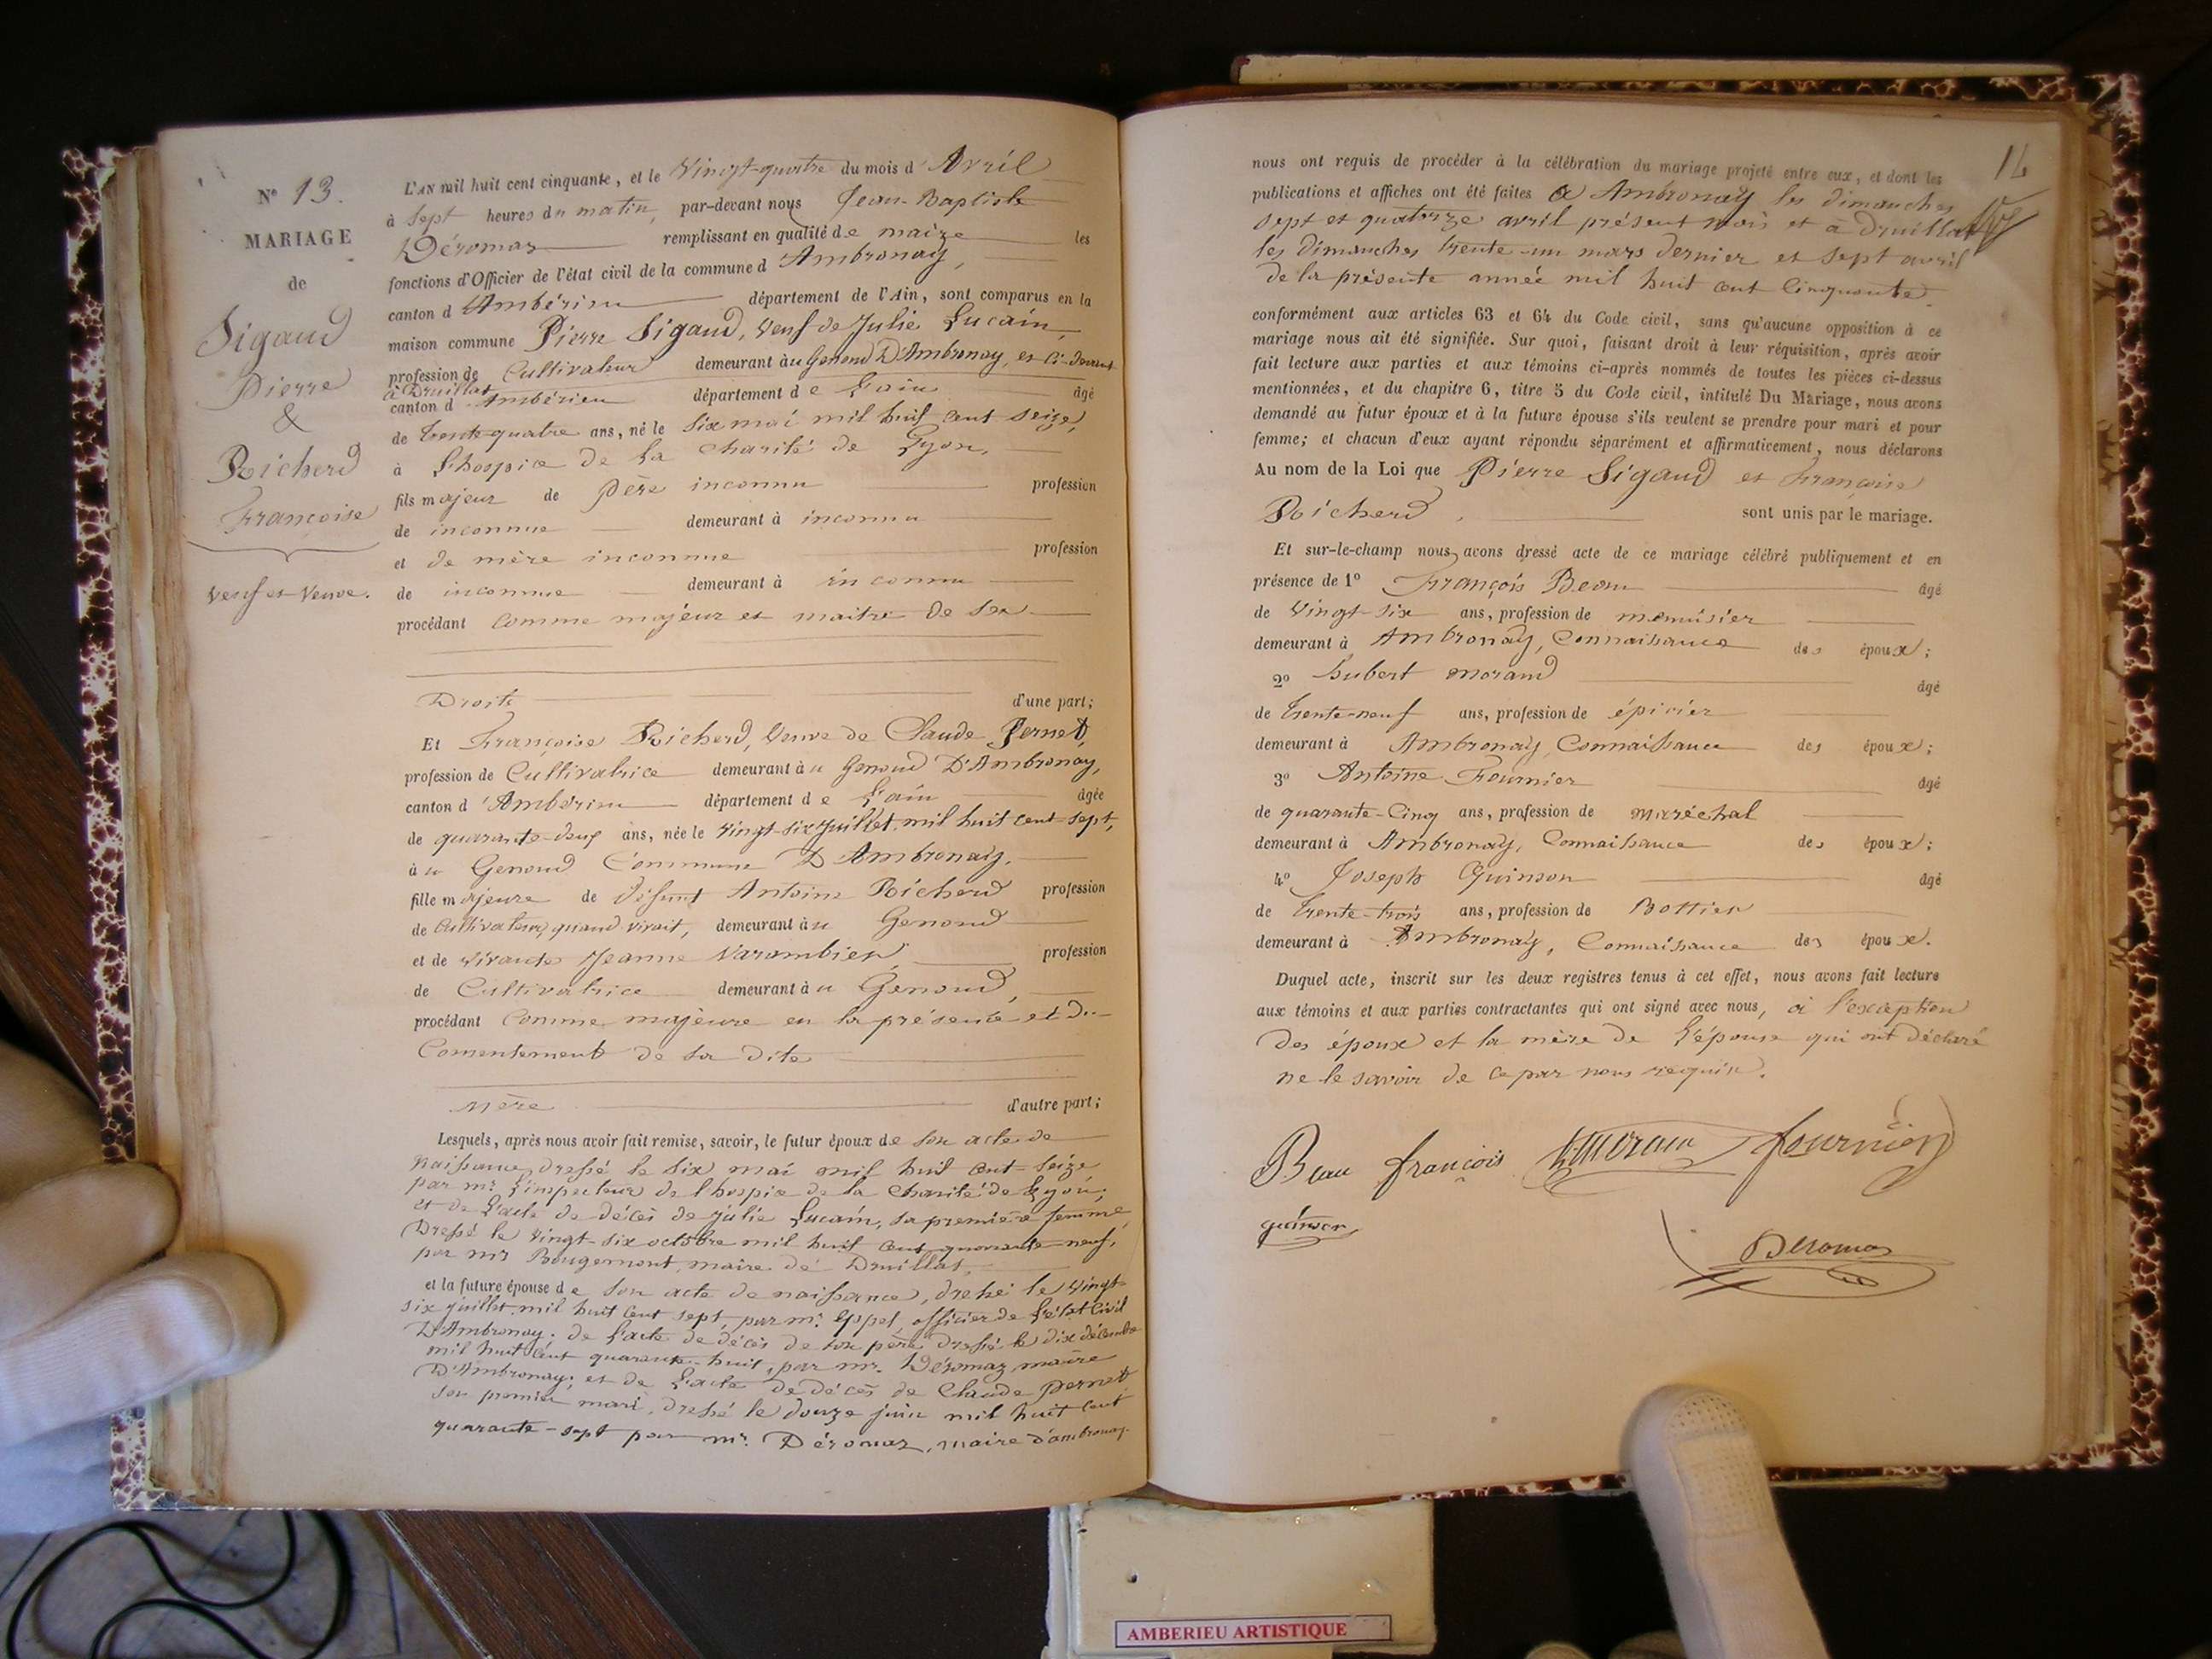 N° 13.
MARIAGE
de
Sigaud
Pierre
&
Richerd
Françoise
Veuf et Veuve.
L'AN mil huit cent cinquante, et le Vingt-quatre du mois d'Avril
à Sept heures du matin, par-devant nous Jean-Baptiste
Déromas remplissant en qualité de maire les
fonctions d'Officier de l'état civil de la commune d'Ambronay,
canton d'Ambérieu département de l'Ain, sont comparus en la
maison commune Pierre Sigaud, Veuf de Julie Lucain,
profession de Cultivateur demeurant au Genoud D'Ambronay, et ci-devant
à Druillat
canton d'Ambérieu département de L'ain âgé
de trente-quatre ans, né le Six mai mil huit cent seize,
à L'hospice de la Charité de Lyon,
fils majeur de Père inconnu profession
de inconnue demeurant à inconnu
et de mère inconnue profession
de inconnue demeurant à inconnu
procédant comme majeur et maitre de ses
Droits d'une part;
Et Françoise Richerd, Veuve de Claude Pernet,
profession de Cultivatrice demeurant au Genoud D'Ambronay,
canton d'Ambérieu département de L'ain âgée
de quarante-deux ans, née le Vingt-six Juillet mil huit cent-sept,
au Genoud Commune D'Ambronay.
fille majeure de Défunt Antoine Richerd profession
de Cultivateur, quand vivait, demeurant au Genoud
et de Vivante Jeanne Varambier profession
de Cultivatrice demeurant au Genoud,
procédant Comme majeure en la présence et du
Consentement de sa dite
mère d'autre part;
Lesquels, après nous avoir fait remise, savoir, le futur époux de son acte de
naissance, dressé le Six mai mil huit cent-seize
par mr. L'inspecteur de l'hospice de la Charité de Lyon;
et de L'acte de décès de Julie Lucain, sa première femme,
Dressé le Vingt-six octobre mil huit cent quarante-neuf,
par mr Rougemont, maire de Druillat,
et la future épouse de son acte de naissance, dressé le Vingt-
six juillet mil huit cent sept, par mr. Eppel, officier de L'état Civil
D'Ambronay; de L'acte de décès de son père dressé le dix décembre
mil huit cent quarante-huit, par mr. Déromaz maire
D'Ambronay; et de L'acte de décès de Claude Pernet
son premier mari, dressé le douze juin mil huit cent
quarante-sept par mr. Déromaz, maire d'ambronay.
14
nous ont requis de procéder à la célébration du mariage projeté entre eux, et dont les
publications et affiches ont été faites à Ambronay les dimanches
sept et quatorze avril présent mois et à Druillat
les dimanches trente-un mars dernier et sept avril
de la présente année mil huit cent cinquante.
conformément aux articles 63 et 64 du Code civil, sans qu'aucune opposition à ce
mariage nous ait été signifiée. Sur quoi, faisant droit à leur réquisition, après avoir
fait lecture aux parties et aux témoins ci-après nommés de toutes les pièces ci-dessus
mentionnées, et du chapitre 6, titre 5 du Code civil, intitulé Du Mariage, nous avons
demandé au futur époux et à la future épouse s'ils veulent se prendre pour mari et pour
femme; et chacun d'eux ayant répondu séparément et affirmativement, nous déclarons
Au nom de la Loi que Pierre Sigaud et Françoise
Richerd, sont unis par le mariage.
Et sur-le-champ nous avons dressé acte de ce mariage célébré publiquement et en
présence de 1° François Beau âgé
de Vingt-six ans, profession de menuisier
demeurant à Ambronay, Connaissance des époux;
2° hubert morand âgé
de trente-neuf ans, profession de épicier
demeurant à Ambronay, Connaissance des époux;
3° Antoine Fournier âgé
de quarante-cinq ans, profession de maréchal
demeurant à Ambronay, Connaissance des époux;
4° Joseph Quinson âgé
de trente-trois ans, profession de Bottier
demeurant à Ambronay, Connaissance des époux.
Duquel acte, inscrit sur les deux registres tenus à cet effet, nous avons fait lecture
aux témoins et aux parties contractantes qui ont signé avec nous, à l'exception
des époux et la mère de L'épouse qui ont déclaré
ne le savoir de ce par nous requis.
Beau françois hmoran fournier
quinson
Deromas
AMBERIEU ARTISTIQUE